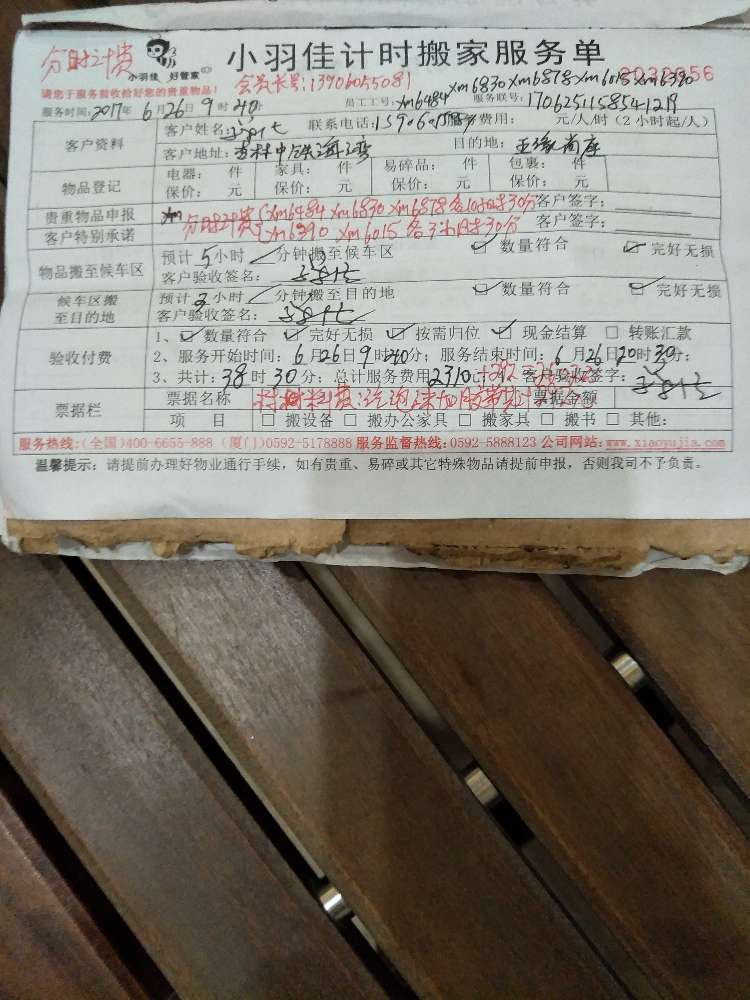 分时计费
小羽佳 好管家
小羽佳计时搬家服务单
会员卡号:13906055081
请您于服务验收给好您的贵重物品!
服务时间:2017年6月26日9时20分 员工工号:xm6484 xm6830 xm6878 xm6015 xm6390 服务联号:1706251158541219
客户资料
客户姓名: 联系电话: 费用: 元/人/时(2小时起/人)
客户地址:杏林中铁海湾 目的地:亚缘尚座
物品登记
电器: 件 家具: 件 易碎品: 件 包裹: 件
保价: 元 保价: 元 保价: 元 保价: 元
贵重物品申报 客户签字:
分时计费 xm6484 xm6830 xm6878 各10时30分
客户特别承诺 客户签字:
xm6390 xm6015 各3时30分
物品搬至候车区
预计5小时 分钟搬至候车区 数量符合 完好无损
客户验收签名:
候车区搬至目的地
预计3小时 分钟搬至目的地 数量符合 完好无损
客户验收签名:
验收付费
1、 数量符合 完好无损 按需归位 现金结算 转账汇款
2、服务开始时间:6月26日9时20分;服务结束时间:6月26日20时30分;
3、共计:38时30分;总计服务费用2310元 客户验收签字:
票据栏
票据名称 票据金额
项 目 搬设备 搬办公家具 搬家具 搬书 其他:
服务热线:(全国)400-6655-888 (厦门)0592-5178888 服务监督热线:0592-5888123 公司网站:www.xiaoyujia.com
温馨提示:请提前办理好物业通行手续,如有贵重、易碎或其它特殊物品请提前申报,否则我司不予负责。